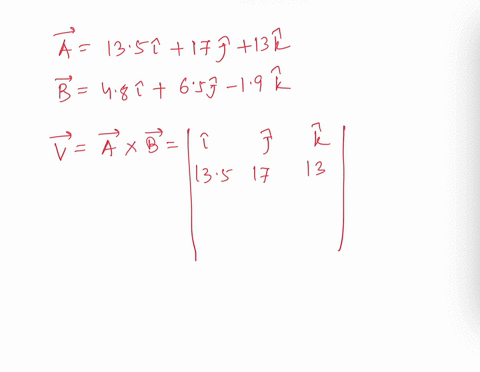 A⃗ = 13.5î + 17ĵ + 13k̂
B⃗ = 4.8î + 6.5ĵ - 1.9k̂
V⃗ = A⃗ × B⃗ = | î ĵ k̂ |
13.5 17 13